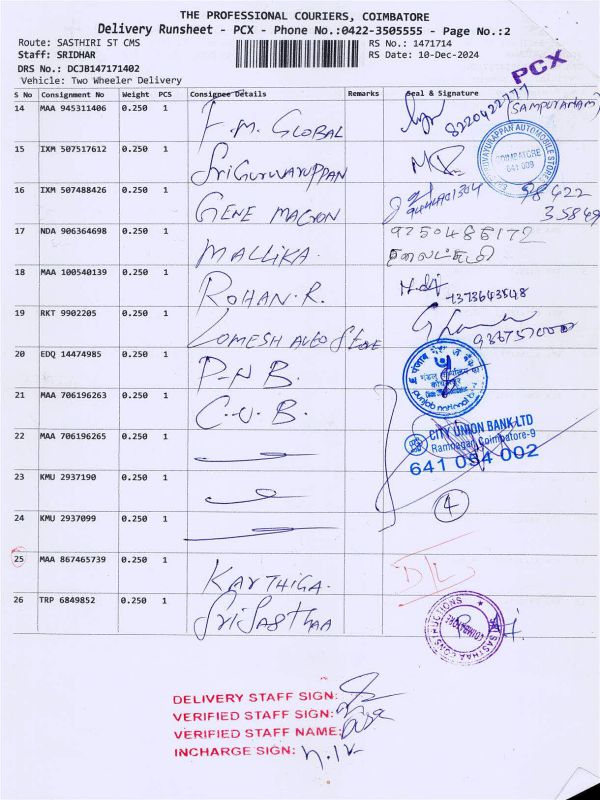 THE PROFESSIONAL COURIERS, COIMBATORE
Delivery Runsheet - PCX - Phone No.:0422-3505555 - Page No.:2
Route: SASTHIRI ST CMS RS No.: 1471714
Staff: SRIDHAR RS Date: 10-Dec-2024
DRS No.: DCJB147171402
Vehicle: Two Wheeler Delivery
PCX
S No Consignment No Weight PCS Consignee Details Remarks Seal & Signature
14 MAA 945311406 0.250 1 F.M. GLOBAL 8220422777 (SAMPURANAM)
15 IXM 507517612 0.250 1 SriGuruvaruppan
COIMBATORE
641 009
16 IXM 507488426 0.250 1 GENE MACRON 98422
35849
17 NDA 906364698 0.250 1 MALLIKA. 9250486172
18 MAA 100540139 0.250 1 ROHAN.R. 7373643548
19 RKT 9902205 0.250 1 LOMESH AUTO Store
20 EDQ 14474985 0.250 1 P.N.B.
punjab national bank
21 MAA 706196263 0.250 1 C.U.B.
CITY UNION BANK LTD
Ramnagar, Coimbatore-9
641 054 002
22 MAA 706196265 0.250 1
23 KMU 2937190 0.250 1
24 KMU 2937099 0.250 1
4
25 MAA 867465739 0.250 1 KARTHIGA. DL
26 TRP 6849852 0.250 1 Sri Sasthaa
SRI SASTHAA CONSTRUCTIONS
COIMBATORE
DELIVERY STAFF SIGN:
VERIFIED STAFF SIGN:
VERIFIED STAFF NAME:
INCHARGE SIGN: